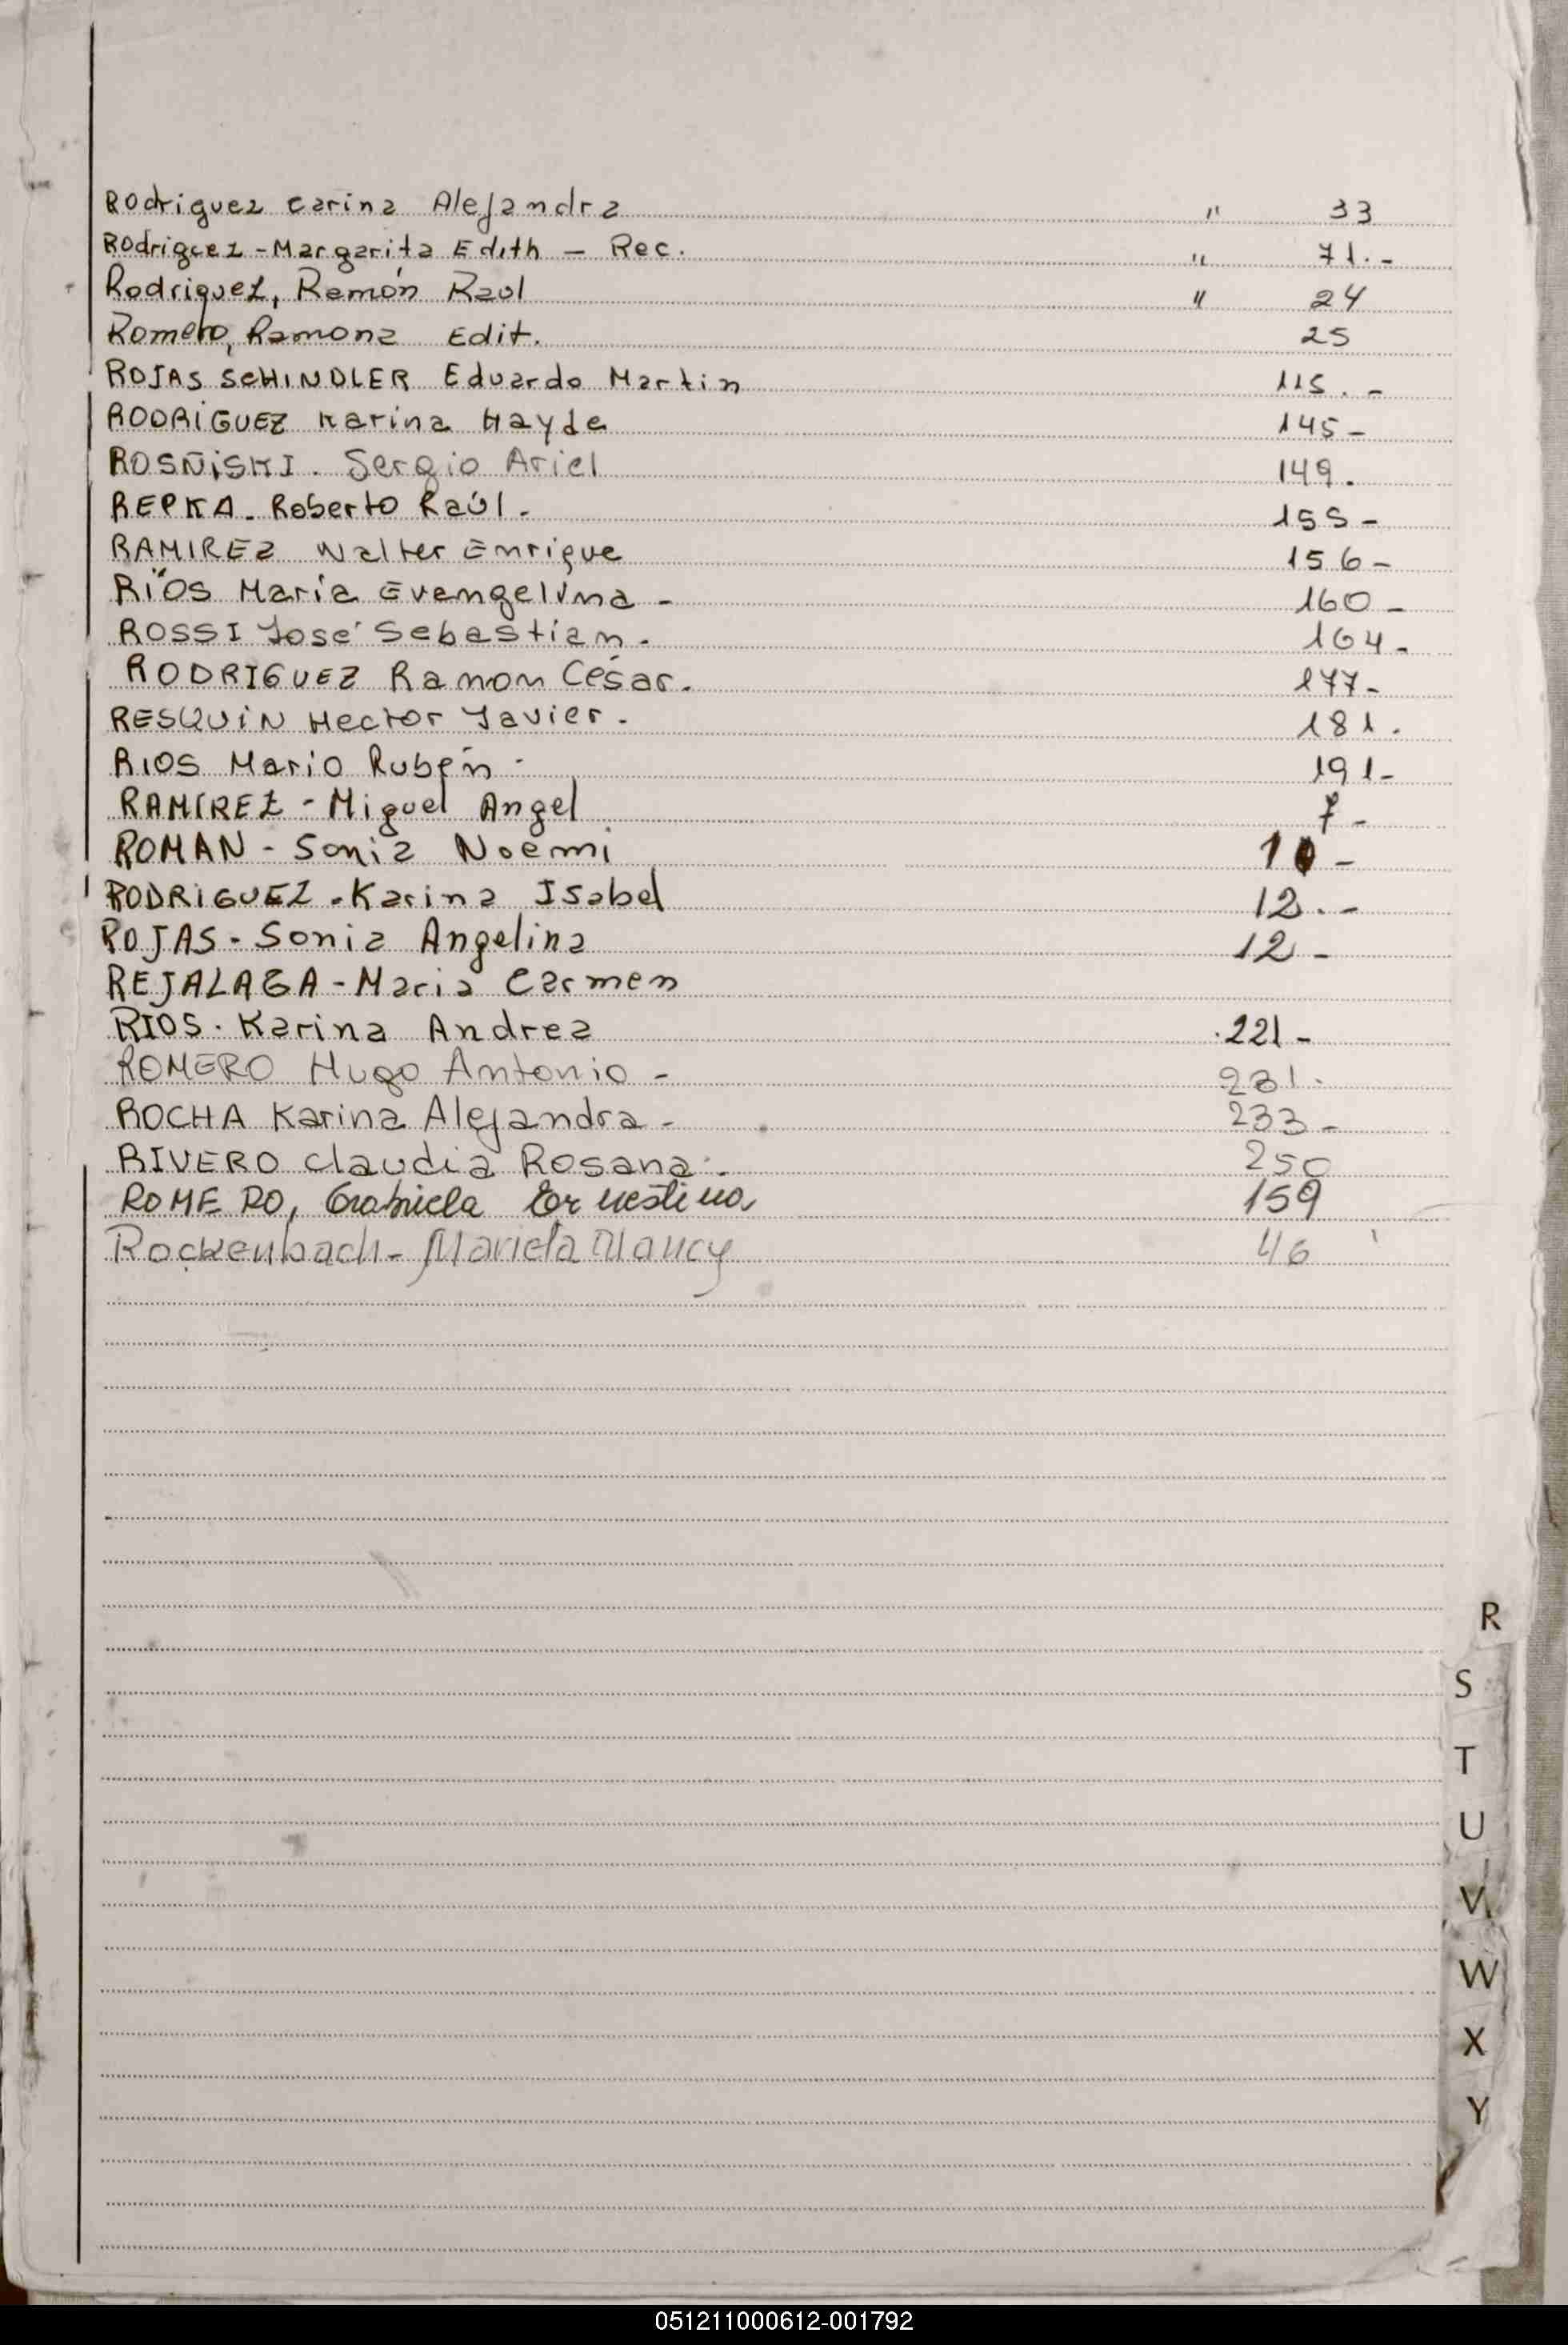 Rodriguez Carina Alejandra " 33
Rodriguez - Margarita Edith - Rec. " 71.-
Rodriguez, Ramón Raul " 24
Romero, Ramona Edit. 25
ROJAS SCHINDLER Eduardo Martin 115.-
RODRÍGUEZ Karina Hayde 145-
ROSÑISKI. Sergio Ariel 149.
REPKA. Roberto Raúl. 155-
RAMIREZ Walter Enrique 156-
RÍOS María Evangelina - 160-
ROSSI José Sebastian. 164-
RODRIGUEZ Ramon César. 177-
RESQUIN Hector Javier. 181.
RIOS Mario Rubén - 191-
RAMIREZ - Miguel Angel 7-
ROMAN - Sonia Noemi 10-
RODRIGUEZ - Karina Isabel 12.-
ROJAS - Sonia Angelina 12-
REJALAGA - Maria Carmen
RIOS. Karina Andrea 221-
ROMERO Hugo Antonio - 231.
ROCHA Karina Alejandra - 233-
RIVERO Claudia Rosana. 250
ROMERO, Gabriela Ernestina 159
Rockenbach - Mariela Nancy 46
R
S
T
U
V
W
X
Y
051211000612-001792